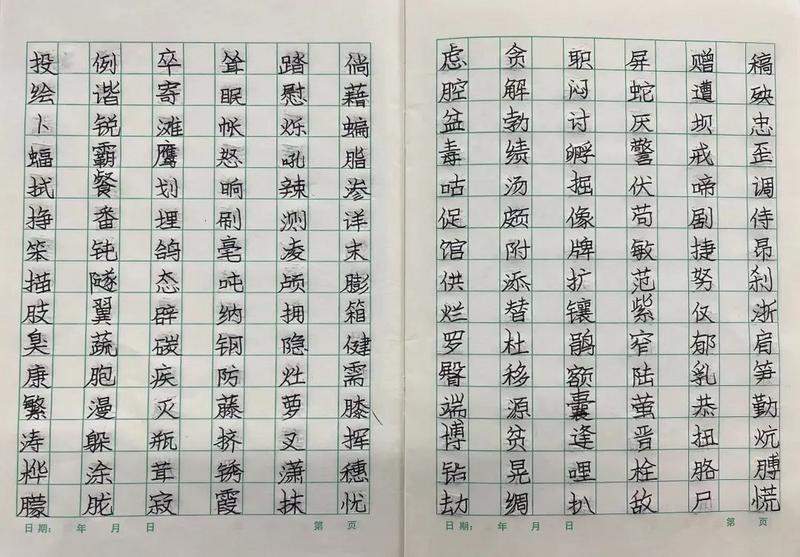 投 例 卒 耸 踏 倘
绘 谐 寄 眠 慰 藉
卜 锐 滩 帐 烁 蝙
蝠 霸 鹰 怒 吼 脂
拭 餐 划 晌 辣 渗
挣 番 埋 刷 测 详
笨 钝 鸽 毫 凌 末
描 隧 态 吨 颅 膨
肢 翼 辟 纳 拥 箱
臭 蔬 碳 钢 隐 健
康 胞 疾 防 灶 需
繁 漫 灭 藤 萝 膝
涛 躲 瓶 挤 叉 挥
桦 涂 茸 锈 潇 穗
朦 胧 寂 霞 抹 忧
日期: 年 月 日 第 页
虑 贪 职 屏 赠 稿
腔 解 闷 蛇 遭 殃
盆 勃 讨 厌 坝 忠
毒 绩 孵 警 戒 歪
咕 汤 掘 伏 啼 调
促 颇 像 苟 剧 侍
馆 附 牌 敏 捷 昂
供 添 扩 范 努 刹
烂 替 镶 紫 仅 浙
罗 杜 鹃 窄 郁 肩
臀 移 额 陆 乳 笋
端 源 囊 萤 恭 勤
博 贫 逢 晋 扭 炕
钻 晃 哩 拴 胳 膊
劫 绸 扒 敌 尸 慌
日期: 年 月 日 第 页